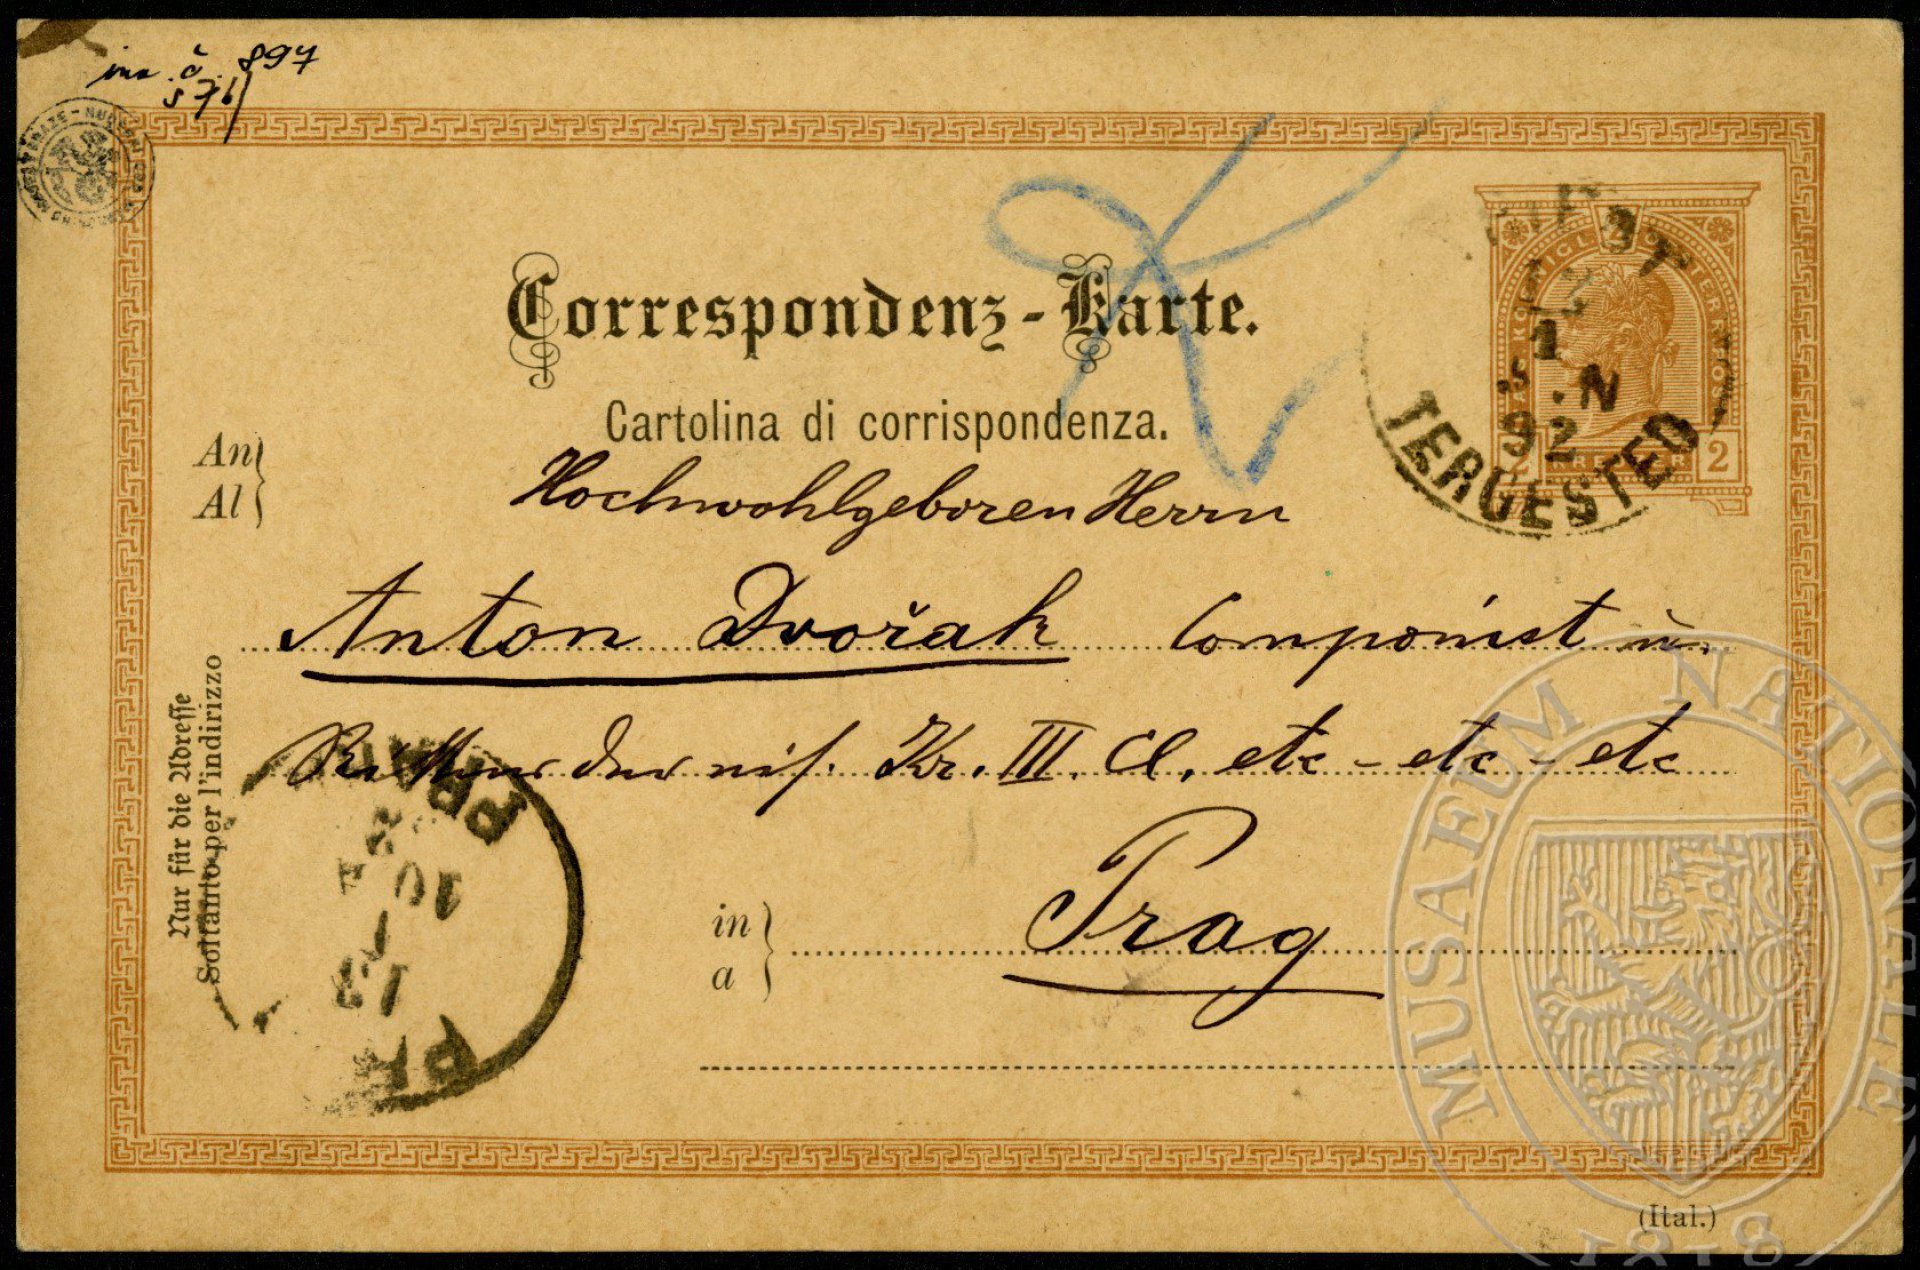 inv. č. 897
s 76/
Correspondenz-Karte.
Cartolina di corrispondenza.
An
Al
Hochwohlgeboren Herrn
Anton Dvořak Componist u.
Ritter der eis. Kr. III. Cl. etc - etc - etc
in
a
Prag
Nur für die Adresse
Soltanto per l'indirizzo
TERGESTEO
92
2
PRAG
(Ital.)
MUSAEUM NATIONALE
1818